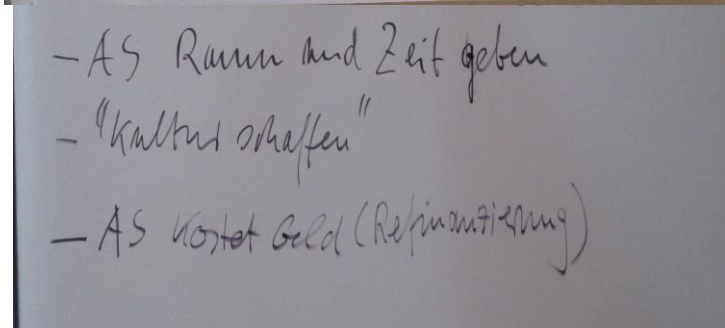 - AS Raum und Zeit geben
- "Kultur schaffen"
- AS kostet Geld (Refinanzierung)